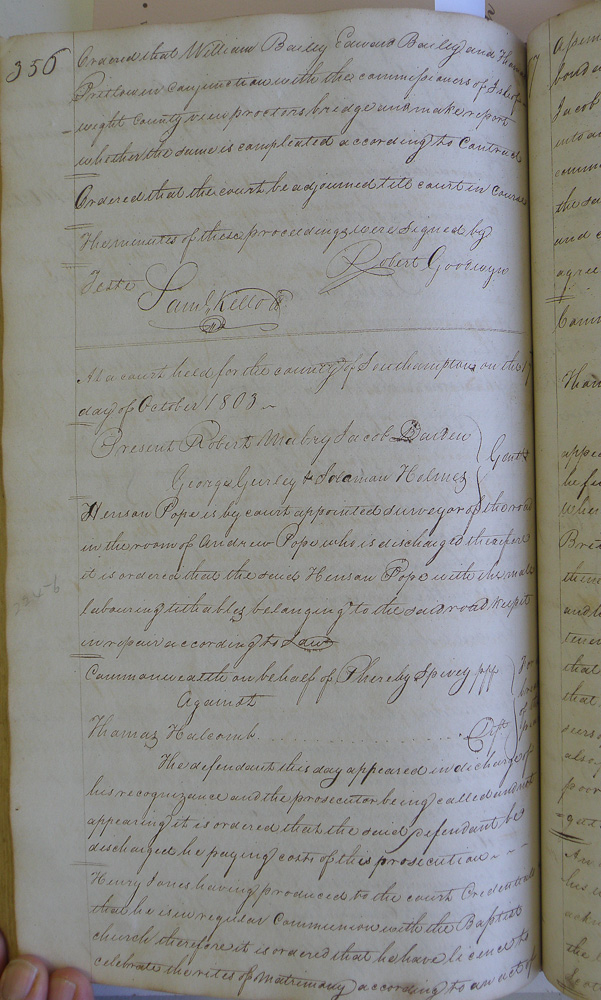 356
Ordered that William Bailey Edward Bailey and Thomas
Pretlow in conjunction with the commissioners of Isle of
weight County view proctors bridge and make report
whether the same is compleated according to Contract
Ordered that the court be adjourned till court in Course
The minutes of these proceedings were signed by
Robert Goodwyn
Teste
Saml. Kello
At a court held for the county of Southampton on the 17
day of October 1803
Present Robert Mabry Jacob Barrow
George Gurley & Soloman Holmes
Gent
Henson Pope is by court appointed surveyor of the road
in the room of Andrew Pope who is discharged therefore
it is ordered that the said Henson Pope with the male
labouring tithables belonging to the said road keep it
in repair according to Law
Commonwealth on behalf of Phereby Spivey plf
Against
Thomas Halcomb Deft
The defendant this day appeared in discharge of
his recognizance and the prosecutor being called and not
appearing it is ordered that the said defendant be
discharged he paying costs of this prosecution
Henry Jones having produced to the court Credentials
that he is in regular Communion with the Baptist
church therefore it is ordered that he have licence to
celebrate the rites of Matrimony according to an act of